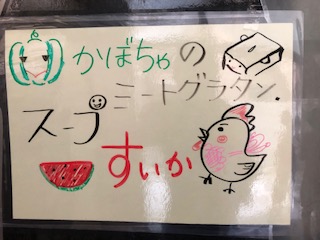 かぼちゃの
ミートグラタン.
スープ
すいか